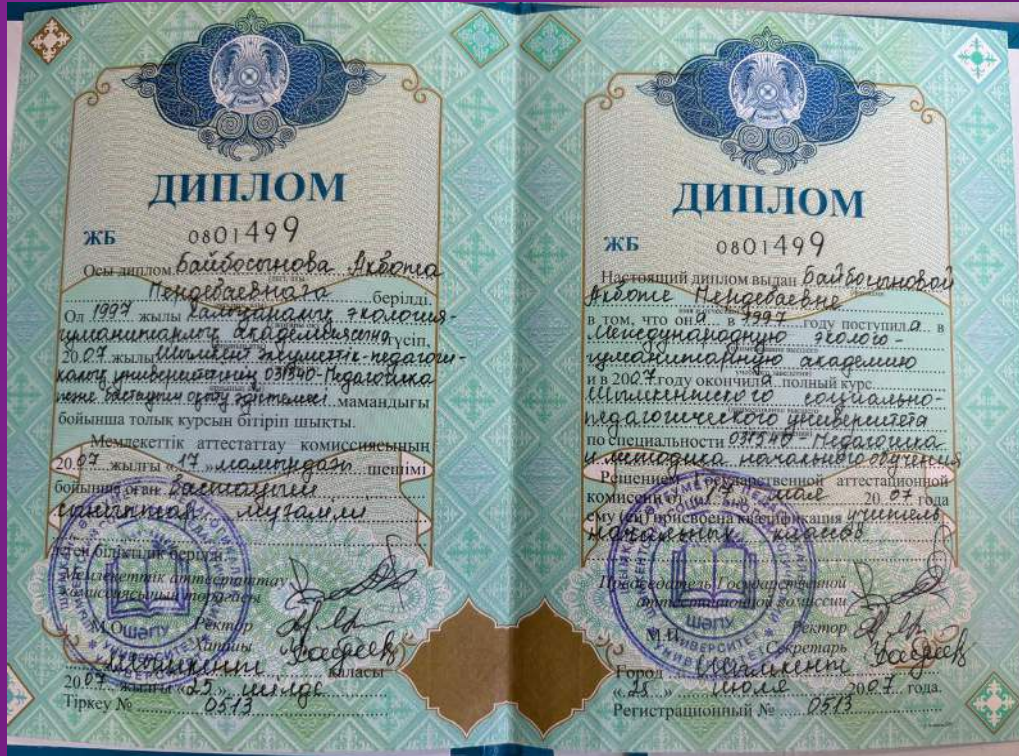 ДИПЛОМ
ЖБ 0801499
Осы диплом Байбосынова Акбота
берілді.
Ол 1997 жылы Халықаралық экология-
гуманитарлық академиясына түсіп,
2007 жылы Шымкент әлеуметтік-педагоги-
калық университетінің 031540-Педагогика
және бастауыш оқыту әдістемесі мамандығы
бойынша толық курсын бітіріп шықты.
Мемлекеттік аттестаттау комиссиясының
2007 жылғы «17» мамырдағы шешімі
бойынша оған бастауыш
сыныптар мұғалімі
деген біліктілік берілді
Мемлекеттік аттестаттау
комиссиясының төрағасы
М.О. Ректор
Хатшы
Шымкент қаласы
2007 жылғы шілде
Тіркеу № 0513
ДИПЛОМ
ЖБ 0801499
Настоящий диплом выдан Байбосыновой
Акботе
в том, что она в 1997 году поступила в
Международную эколого-
гуманитарную академию
и в 2007 году окончила полный курс
Шымкентского социально-
педагогического университета
по специальности 031540-Педагогика
и методика начального обучения
Решением Государственной аттестационной
комиссии от «17» мая 2007 года
ему (ей) присвоена квалификация учитель
начальных классов
Председатель Государственной
аттестационной комиссии
М.П. Ректор
Секретарь
Город Шымкент
июля 2007 года.
Регистрационный № 0513
ШӘПУ
ШӘПУ